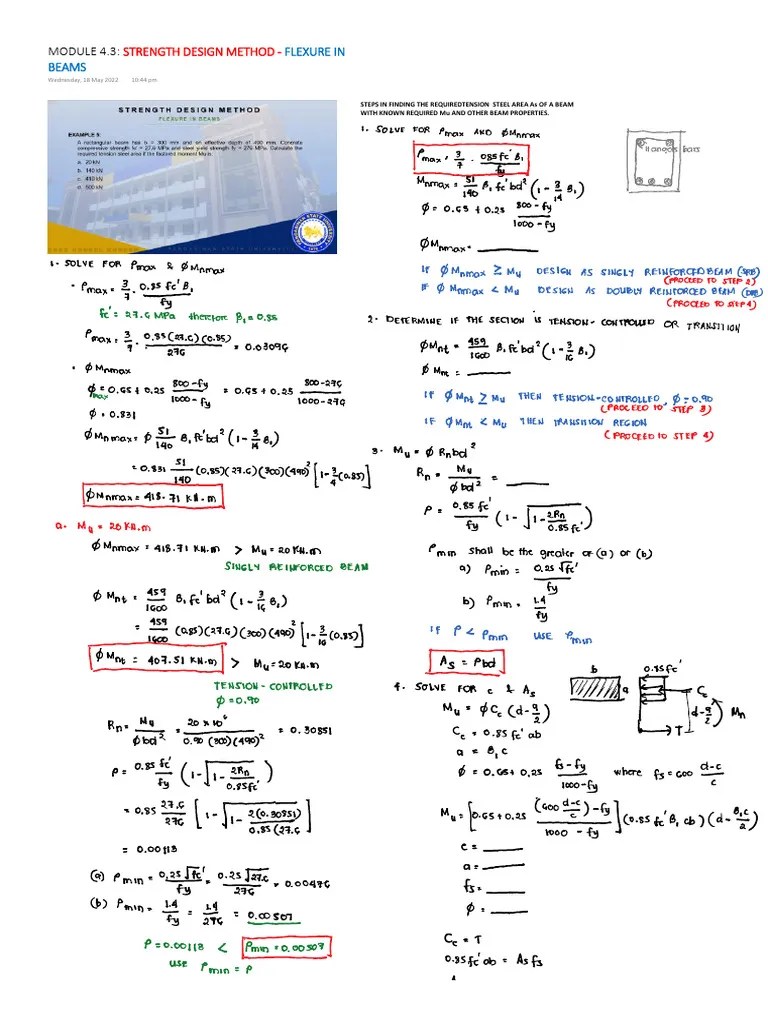 MODULE 4.3: STRENGTH DESIGN METHOD - FLEXURE IN
BEAMS
Wednesday, 18 May 2022 10:44 pm
STRENGTH DESIGN METHOD
FLEXURE IN BEAMS
EXAMPLE 5:
A rectangular beam has b = 300 mm and an effective depth of 490 mm. Concrete
compressive strength fc' = 27.6 MPa and steel yield strength fy = 276 MPa. Calculate the
required tension steel area if the factored moment Mu is:
a. 20 kN
b. 140 kN
c. 410 kN
d. 500 kN
1. SOLVE FOR ρmax & ØMnmax
• ρmax = 3/7 · 0.85 fc' β1/fy
fc' = 27.6 MPa therefore β1 = 0.85
ρmax = 3/7 · 0.85(27.6)(0.85)/276 = 0.03096
• ØMnmax
Ømax = 0.65 + 0.25 800-fy/1000-fy = 0.65 + 0.25 800-276/1000-276
Ø = 0.831
ØMnmax = Ø 51/140 β1 fc' bd² (1 - 3/14 β1)
= 0.831 51/140 (0.85)(27.6)(300)(490)² [1 - 3/4 (0.85)]
ØMnmax = 418.71 KN.m
a. Mu = 20 KN.m
ØMnmax = 418.71 KN.m > Mu = 20 KN.m
SINGLY REINFORCED BEAM
ØMnt = 459/1600 β1 fc' bd² (1 - 3/16 β1)
= 459/1600 (0.85)(27.6)(300)(490)² [1 - 3/16 (0.85)]
ØMnt = 407.51 KN.m > Mu = 20 KN.m
TENSION - CONTROLLED
Ø = 0.90
Rn = Mu/Øbd² = 20 x 10⁶/0.90 (300)(490)² = 0.30851
ρ = 0.85 fc'/fy (1 - √1 - 2Rn/0.85fc')
= 0.85 27.6/276 [1 - √1 - 2(0.30851)/0.85(27.6]
= 0.00113
(a) ρmin = 0.25 √fc'/fy = 0.25 √27.6/276 = 0.00476
(b) ρmin = 1.4/fy = 1.4/276 = 0.00507
ρ = 0.00113 < ρmin = 0.00507
use ρmin = ρ
STEPS IN FINDING THE REQUIREDTENSION STEEL AREA As OF A BEAM
WITH KNOWN REQUIRED Mu AND OTHER BEAM PROPERTIES.
1. SOLVE FOR ρmax AND ØMnmax
ρmax = 3/7 · 0.85fc' β1/fy
Mnmax = 51/140 β1 fc' bd² (1 - 3/14 β1)
Ø = 0.65 + 0.25 800-fy/1000-fy
ØMnmax = ____
IF ØMnmax ≥ Mu DESIGN AS SINGLY REINFORCED BEAM (SRB)
(PROCEED TO STEP 2)
IF ØMnmax < Mu DESIGN AS DOUBLY REINFORCED BEAM (DRB)
(PROCEED TO STEP 4)
2. DETERMINE IF THE SECTION IS TENSION-CONTROLLED OR TRANSITION
ØMnt = 459/1600 β1 fc' bd² (1 - 3/16 β1)
ØMnt = ____
IF ØMnt ≥ Mu THEN TENSION-CONTROLLED, Ø = 0.90
(PROCEED TO STEP 3)
IF ØMnt < Mu THEN TRANSITION REGION
(PROCEED TO STEP 4)
3. Mu = Ø Rnbd²
Rn = Mu/Øbd² = ____
ρ = 0.85 fc'/fy (1 - √1 - 2Rn/0.85fc')
ρmin shall be the greater of (a) or (b)
a) ρmin = 0.25 √fc'/fy
b) ρmin = 1.4/fy
IF ρ < ρmin USE ρmin
As = ρbd
4. SOLVE FOR c & As
b
a
0.85fc'
Cc
d-a/2
Mn
T
Mu = ØCc (d - a/2)
Cc = 0.85 fc' ab
a = β1c
Ø = 0.65 + 0.25 fs-fy/1000-fy where fs = 600 d-c/c
Mu = [0.65 + 0.25 (600 d-c/c) - fy/1000 - fy] (0.85 fc' β1 cb) (d - β1c/2)
c = ____
a = ____
fs = ____
Ø = ____
Cc = T
0.85 fc' ab = As fs